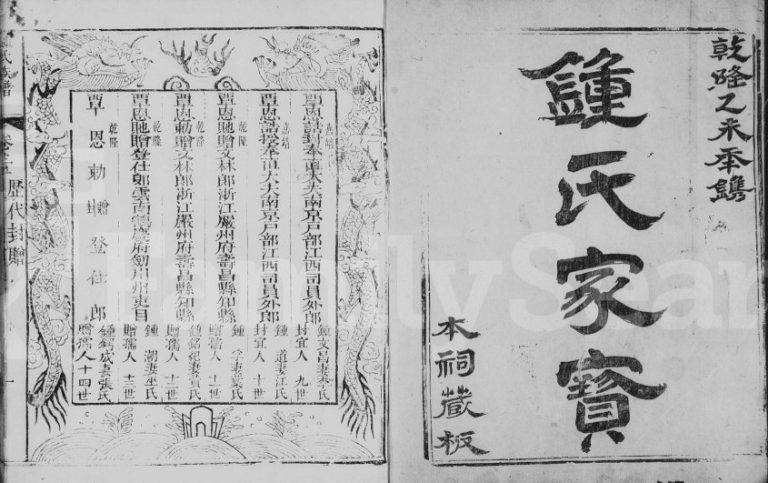 乾隆乙未年鐫
鍾氏家寶
本祠藏板
嘉靖
覃恩誥封奉直大夫南京戶部江西司員外郎
鍾文昌妻李氏
封宜人 九世
嘉靖
覃恩誥授奉直大夫南京戶部江西司員外郎
鍾 道妻江氏
封宜人 十世
乾隆
覃恩貤贈文林郎浙江嚴州府壽昌縣知縣
鍾 妻葉氏
贈孺人 十一世
乾隆
覃恩勅贈文林郎浙江嚴州府壽昌縣知縣
鍾銘紀妻氏
贈孺人 十二世
乾隆
覃恩貤贈登仕郎雲南府劍川州吏目
鍾 潮妻巫氏
贈孺人 十三世
乾隆
覃恩勅贈登仕郎
鍾錫成妻張氏
贈孺人十四世
氏族譜 歷代封贈 一
FamilySear